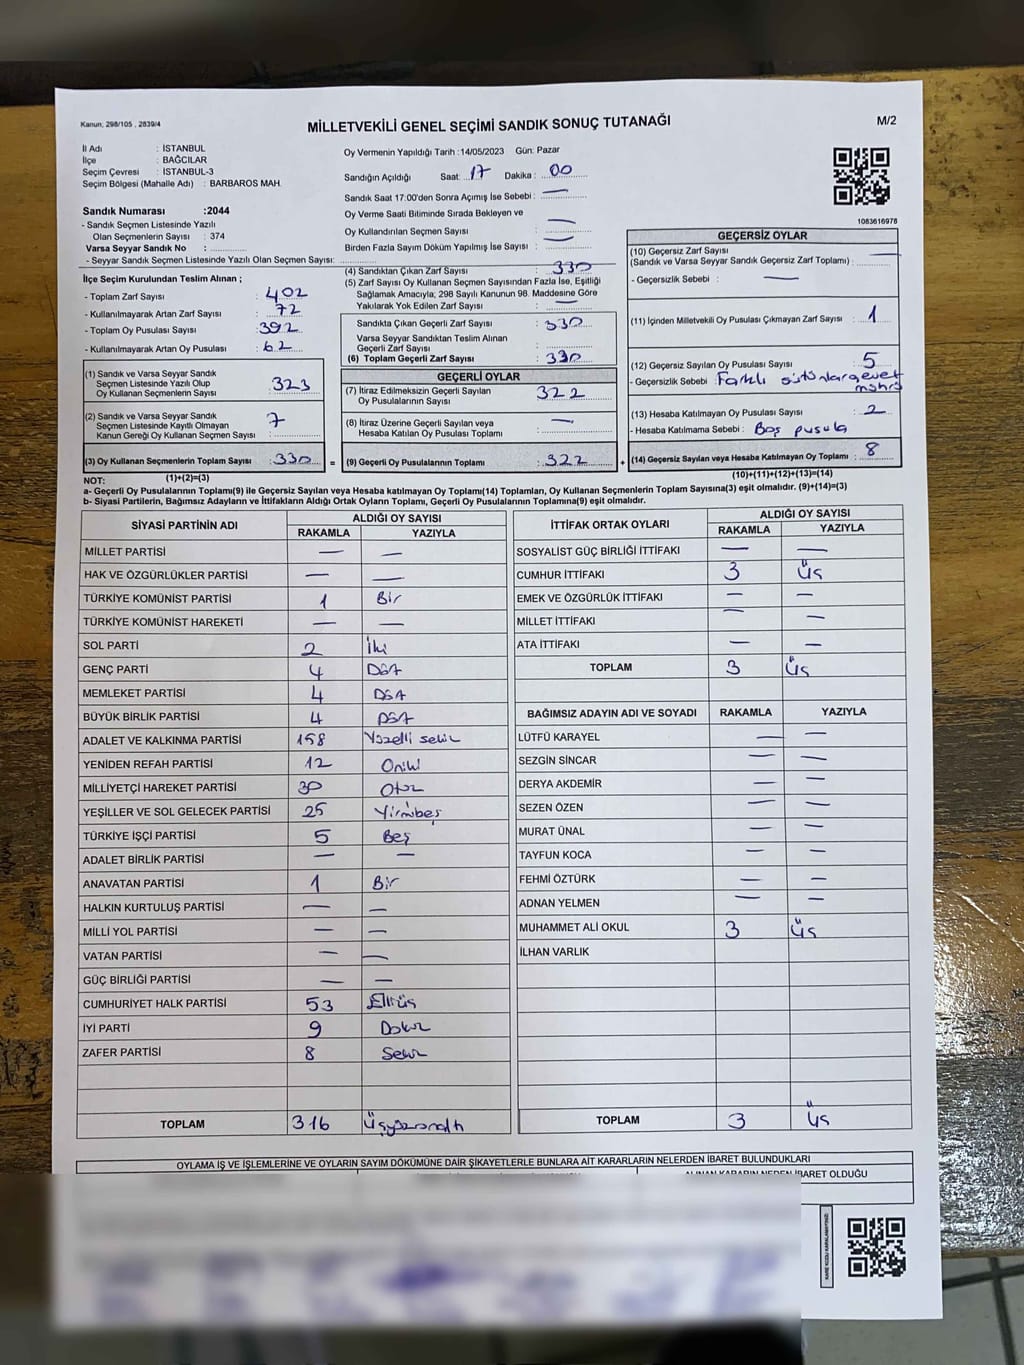 Kanun; 298/105 , 2839/4
MİLLETVEKİLİ GENEL SEÇİMİ SANDIK SONUÇ TUTANAĞI
M/2
İl Adı : İSTANBUL
İlçe : BAĞCILAR
Seçim Çevresi : İSTANBUL-3
Seçim Bölgesi (Mahalle Adı) : BARBAROS MAH.
Sandık Numarası :2044
- Sandık Seçmen Listesinde Yazılı
Olan Seçmenlerin Sayısı : 374
Varsa Seyyar Sandık No :
- Seyyar Sandık Seçmen Listesinde Yazılı Olan Seçmen Sayısı:
Oy Vermenin Yapıldığı Tarih :14/05/2023 Gün: Pazar
Sandığın Açıldığı Saat: 17 Dakika : 00
Sandık Saat 17:00'den Sonra Açımış İse Sebebi : —
Oy Verme Saati Bitiminde Sırada Bekleyen ve
Oy Kullandırılan Seçmen Sayısı : —
Birden Fazla Sayım Döküm Yapılmış İse Sayısı : —
1083616978
İlçe Seçim Kurulundan Teslim Alınan ;
- Toplam Zarf Sayısı : 402
- Kullanılmayarak Artan Zarf Sayısı : 72
- Toplam Oy Pusulası Sayısı : 392
- Kullanılmayarak Artan Oy Pusulası : 62
(1) Sandık ve Varsa Seyyar Sandık
Seçmen Listesinde Yazılı Olup
Oy Kullanan Seçmenlerin Sayısı : 323
(2) Sandık ve Varsa Seyyar Sandık
Seçmen Listesinde Kayıtlı Olmayan
Kanun Gereği Oy Kullanan Seçmen Sayısı : 7
(3) Oy Kullanan Seçmenlerin Toplam Sayısı : 330 =
(1)+(2)=(3)
(4) Sandıktan Çıkan Zarf Sayısı : 330
(5) Zarf Sayısı Oy Kullanan Seçmen Sayısından Fazla İse, Eşitliği
Sağlamak Amacıyla, 298 Sayılı Kanunun 98. Maddesine Göre
Yakılarak Yok Edilen Zarf Sayısı : —
Sandıkta Çıkan Geçerli Zarf Sayısı : 330
Varsa Seyyar Sandıktan Teslim Alınan
Geçerli Zarf Sayısı :
(6) Toplam Geçerli Zarf Sayısı : 330
GEÇERLİ OYLAR
(7) İtiraz Edilmeksizin Geçerli Sayılan
Oy Pusulalarının Sayısı : 322
(8) İtiraz Üzerine Geçerli Sayılan veya
Hesaba Katılan Oy Pusulası Toplamı : —
(9) Geçerli Oy Pusulalarının Toplamı : 322 +
GEÇERSİZ OYLAR
(10) Geçersiz Zarf Sayısı
(Sandık ve Varsa Seyyar Sandık Geçersiz Zarf Toplamı) : —
- Geçersizlik Sebebi : —
(11) İçinden Milletvekili Oy Pusulası Çıkmayan Zarf Sayısı : 1
(12) Geçersiz Sayılan Oy Pusulası Sayısı : 5
- Geçersizlik Sebebi : Farklı sütunlara evet
mührü
(13) Hesaba Katılmayan Oy Pusulası Sayısı : 2
- Hesaba Katılmama Sebebi : Boş pusula
(14) Geçersiz Sayılan veya Hesaba Katılmayan Oy Toplamı : 8
(10)+(11)+(12)+(13)=(14)
NOT:
a- Geçerli Oy Pusulalarının Toplamı(9) ile Geçersiz Sayılan veya Hesaba katılmayan Oy Toplamı(14) Toplamları, Oy Kullanan Seçmenlerin Toplam Sayısına(3) eşit olmalıdır. (9)+(14)=(3)
b- Siyasi Partilerin, Bağımsız Adayların ve İttifakların Aldığı Ortak Oyların Toplamı, Geçerli Oy Pusulalarının Toplamına(9) eşit olmalıdır.
SİYASİ PARTİNİN ADI ALDIĞI OY SAYISI
RAKAMLA YAZIYLA
MİLLET PARTİSİ — —
HAK VE ÖZGÜRLÜKLER PARTİSİ — —
TÜRKİYE KOMÜNİST PARTİSİ 1 Bir
TÜRKİYE KOMÜNİST HAREKETİ — —
SOL PARTİ 2 İki
GENÇ PARTİ 4 Dört
MEMLEKET PARTİSİ 4 Dört
BÜYÜK BİRLİK PARTİSİ 4 Dört
ADALET VE KALKINMA PARTİSİ 158 Yüzelli sekiz
YENİDEN REFAH PARTİSİ 12 Oniki
MİLLİYETÇİ HAREKET PARTİSİ 30 Otuz
YEŞİLLER VE SOL GELECEK PARTİSİ 25 Yirmibeş
TÜRKİYE İŞÇİ PARTİSİ 5 Beş
ADALET BİRLİK PARTİSİ — —
ANAVATAN PARTİSİ 1 Bir
HALKIN KURTULUŞ PARTİSİ — —
MİLLİ YOL PARTİSİ — —
VATAN PARTİSİ — —
GÜÇ BİRLİĞİ PARTİSİ — —
CUMHURİYET HALK PARTİSİ 53 Elliüç
İYİ PARTİ 9 Dokuz
ZAFER PARTİSİ 8 Sekiz
TOPLAM 316 Üçyüzonaltı
İTTİFAK ORTAK OYLARI ALDIĞI OY SAYISI
RAKAMLA YAZIYLA
SOSYALİST GÜÇ BİRLİĞİ İTTİFAKI — —
CUMHUR İTTİFAKI 3 Üç
EMEK VE ÖZGÜRLÜK İTTİFAKI — —
MİLLET İTTİFAKI — —
ATA İTTİFAKI — —
TOPLAM 3 Üç
BAĞIMSIZ ADAYIN ADI VE SOYADI RAKAMLA YAZIYLA
LÜTFÜ KARAYEL — —
SEZGİN SİNCAR — —
DERYA AKDEMİR — —
SEZEN ÖZEN — —
MURAT ÜNAL — —
TAYFUN KOCA — —
FEHMİ ÖZTÜRK — —
ADNAN YELMEN — —
MUHAMMET ALİ OKUL 3 Üç
İLHAN VARLIK
TOPLAM 3 Üç
OYLAMA İŞ VE İŞLEMLERİNE VE OYLARIN SAYIM DÖKÜMÜNE DAİR ŞİKAYETLERLE BUNLARA AİT KARARLARIN NELERDEN İBARET BULUNDUKLARI
ALINAN KARARIN NEDEN İBARET OLDUĞU
KARE KODU KARALAMAYINIZ!